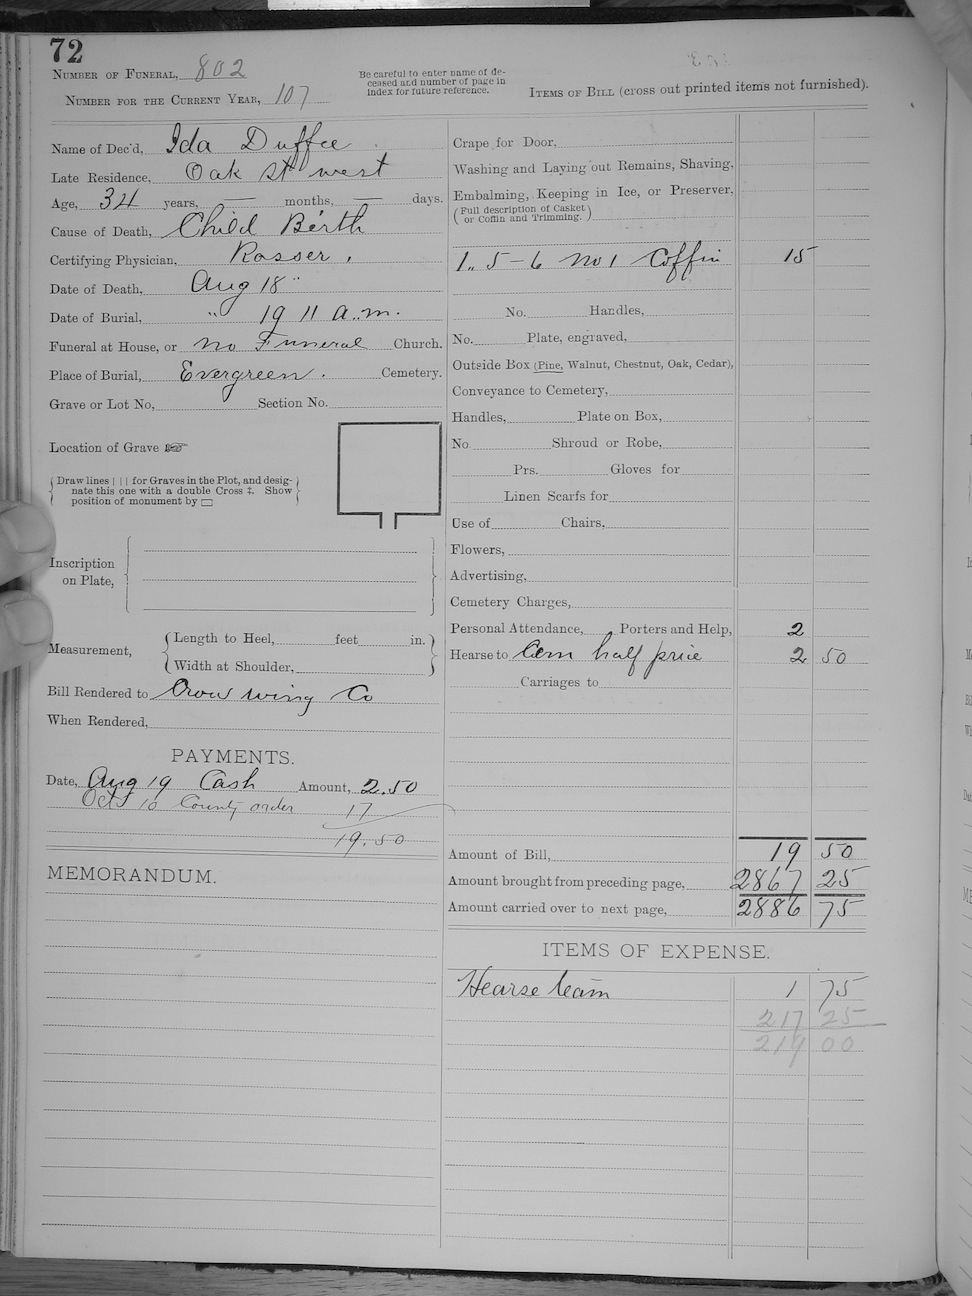 72
Number of Funeral, 802
Number for the Current Year, 107
Be careful to enter name of de-
ceased and number of page in
index for future reference.
Items of Bill (cross out printed items not furnished).
Name of Dec'd, Ida Duffee
Late Residence, Oak st west
Age, 34 years, — months, — days.
Cause of Death, Child Birth
Certifying Physician, Rosser.
Date of Death, Aug 18"
Date of Burial, " 19 11 a.m.
Funeral at House, or no Funeral Church.
Place of Burial, Evergreen. Cemetery.
Grave or Lot No, Section No.
Location of Grave ☞
Draw lines | | | for Graves in the Plot, and desig-
nate this one with a double Cross ‡. Show
position of monument by ▭
Inscription
on Plate,
Measurement,
Length to Heel, feet in.
Width at Shoulder,
Bill Rendered to Crow wing Co
When Rendered,
PAYMENTS.
Date, Aug 19 Cash Amount, 2.50
Oct 10 County order 17
19.50
MEMORANDUM.
Crape for Door,
Washing and Laying out Remains, Shaving,
Embalming, Keeping in Ice, or Preserver,
(Full description of Casket
or Coffin and Trimming.)
1. 5-6 no 1 Coffin 15
No. Handles,
No. Plate, engraved,
Outside Box (Pine, Walnut, Chestnut, Oak, Cedar),
Conveyance to Cemetery,
Handles, Plate on Box,
No. Shroud or Robe,
Prs. Gloves for
Linen Scarfs for
Use of Chairs,
Flowers,
Advertising,
Cemetery Charges,
Personal Attendance, Porters and Help, 2
Hearse to Cem half price 2 50
Carriages to
Amount of Bill, 19 50
Amount brought from preceding page, 2867 25
Amount carried over to next page, 2886 75
ITEMS OF EXPENSE.
Hearse team 1 75
217 25
219 00